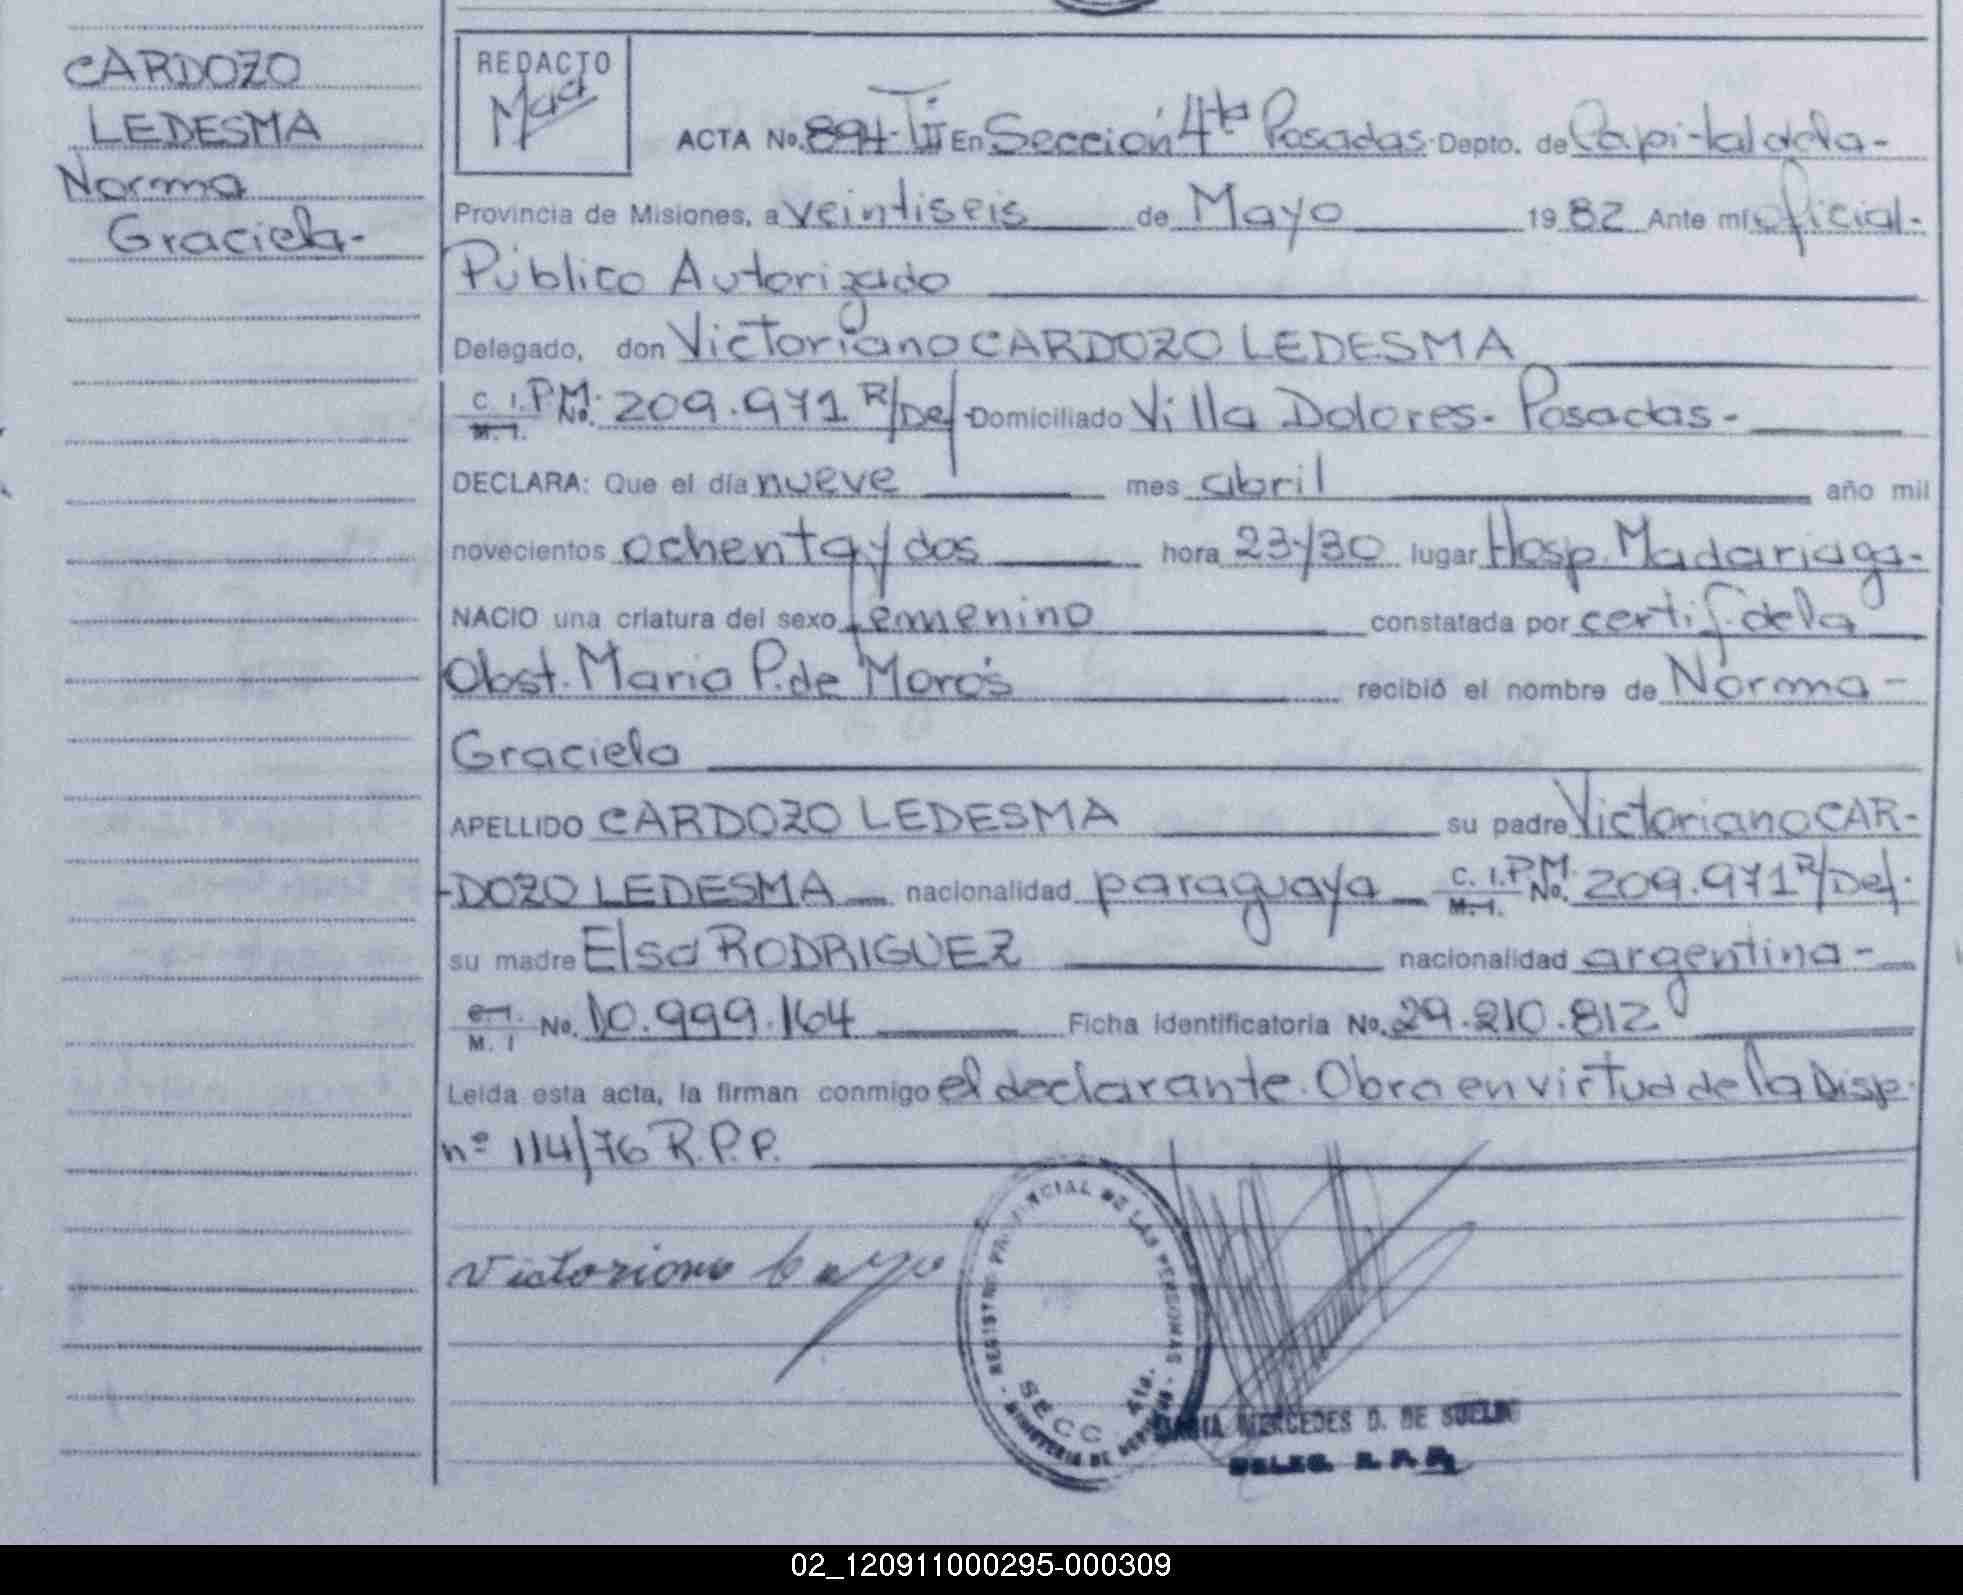 CARDOZO
LEDESMA
Norma
Graciela-
REDACTO
ACTA No. 894-TII En Sección 4ta Posadas Depto. de Capital de la-
Provincia de Misiones, a veintiseis de Mayo 1982 Ante mi oficial-
Público Autorizado
Delegado, don Victoriano CARDOZO LEDESMA
C. I. P.M. No. 209.971 R/Def. Domiciliado Villa Dolores- Posadas-
M. I.
DECLARA: Que el día nueve mes abril año mil
novecientos ochenta y dos hora 23/30 lugar Hosp. Madariaga-
NACIO una criatura del sexo femenino constatada por certif. de la
Obst. Maria P. de Moros recibió el nombre de Norma-
Graciela
APELLIDO CARDOZO LEDESMA su padre Victoriano CAR-
-DOZO LEDESMA nacionalidad paraguaya C. I. P.M. No. 209.971 R/Def.
M. I.
su madre Elsa RODRIGUEZ nacionalidad argentina-
C. I. No. 10.999.164 Ficha identificatoria No. 29.210.812
M. I
Leida esta acta, la firman conmigo el declarante. Obra en virtud de la Disp.
nº 114/76 R.P.P.
Victoriano
REGISTRO PROVINCIAL DE LAS PERSONAS
SECC 4ta.
MINISTERIO DE
MARIA MERCEDES D. DE
DELEG. R.P.P.
02_120911000295-000309